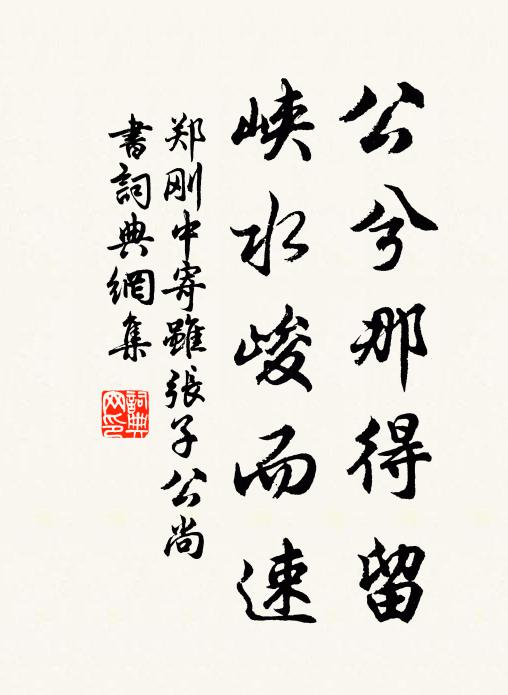 公兮那得留
峡水峻而速
郑刚中寄雖張子公尚
書詞典網集
詞典网印